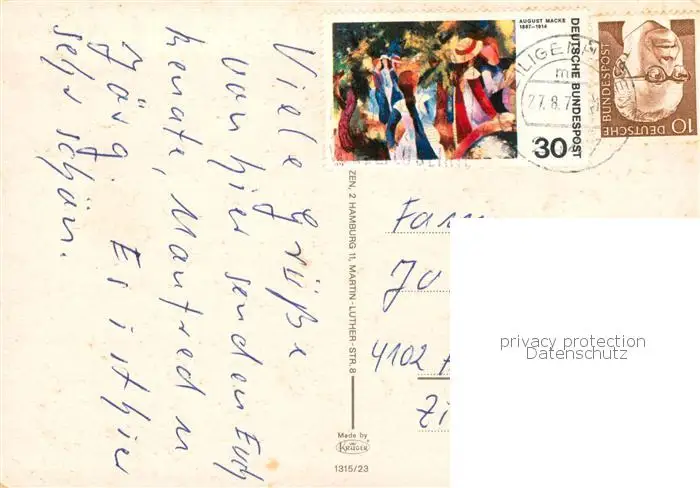 Viele Grüße
von hier senden Euch
Renate, Manfred u
Jörg. Es ist hier
sehr schön.
AUGUST MACKE
1887-1914
DEUTSCHE BUNDESPOST
30
DEUTSCHE BUNDESPOST
10
27.8.7
ZEN, 2 HAMBURG 11, MARTIN-LUTHER-STR. 8
Fam
Jo
4102
Zi
Made by
KRÜGER
1315/23
privacy protection
Datenschutz